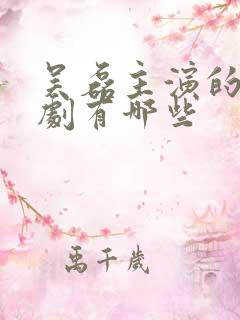 吴磊主演的
劇有哪些
禹千歲